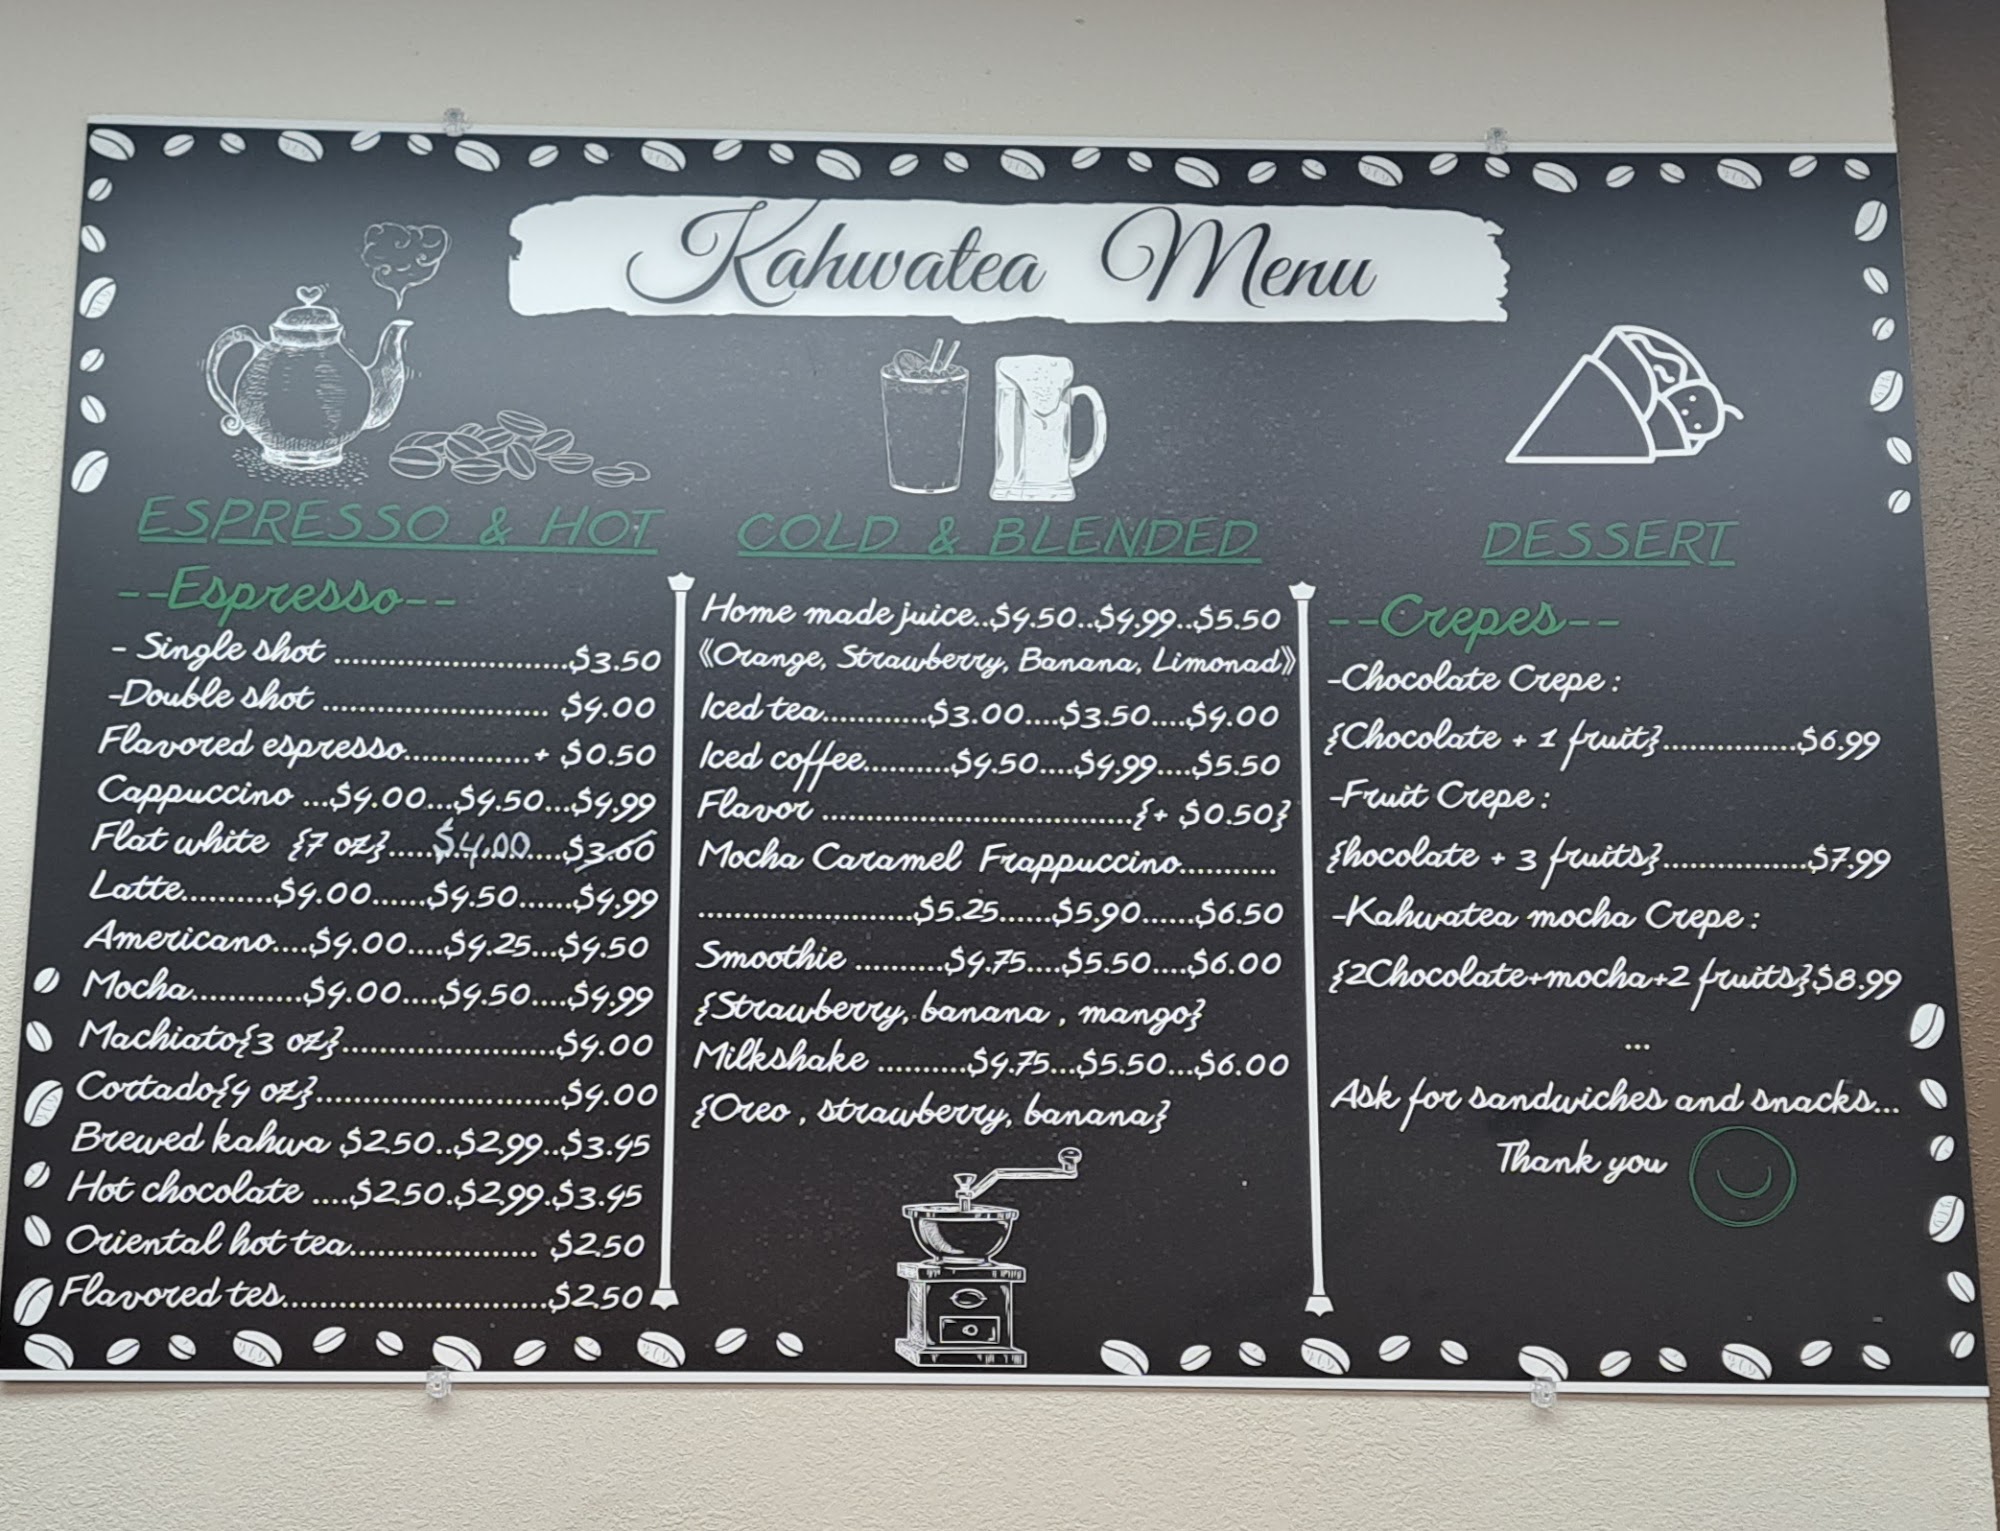 Kahwatea Menu
ESPRESSO & HOT
--Espresso--
- Single shot ............................$3.50
-Double shot ........................... $4.00
Flavored espresso...............+ $0.50
Cappuccino ...$4.00...$4.50...$4.99
Flat white {7 oz}.....$4.00....$3.60
Latte..........$4.00......$4.50......$4.99
Americano....$4.00....$4.25...$4.50
Mocha.............$4.00....$4.50....$4.99
Machiato{3 oz}.........................$4.00
Cortado{4 oz}.............................$4.00
Brewed kahwa $2.50..$2.99..$3.45
Hot chocolate ....$2.50.$2.99.$3.45
Oriental hot tea...................... $2.50
Flavored tes...............................$2.50
COLD & BLENDED
Home made juice..$4.50..$4.99..$5.50
《Orange, Strawberry, Banana, Limonad》
Iced tea............$3.00....$3.50....$4.00
Iced coffee..........$4.50....$4.99....$5.50
Flavor .....................................{+ $0.50}
Mocha Caramel Frappuccino...........
.........................$5.25......$5.90......$6.50
Smoothie ..........$4.75....$5.50....$6.00
{Strawberry, banana , mango}
Milkshake ..........$4.75...$5.50...$6.00
{Oreo , strawberry, banana}
DESSERT
--Crepes--
-Chocolate Crepe :
{Chocolate + 1 fruit}................$6.99
-Fruit Crepe :
{hocolate + 3 fruits}.................$7.99
-Kahwatea mocha Crepe :
{2Chocolate+mocha+2 fruits}$8.99
...
Ask for sandwiches and snacks...
Thank you